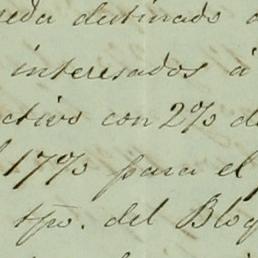 ueda destinado a
interesados á
ctivo con 2% d
17% para el
tpo. del Bloq